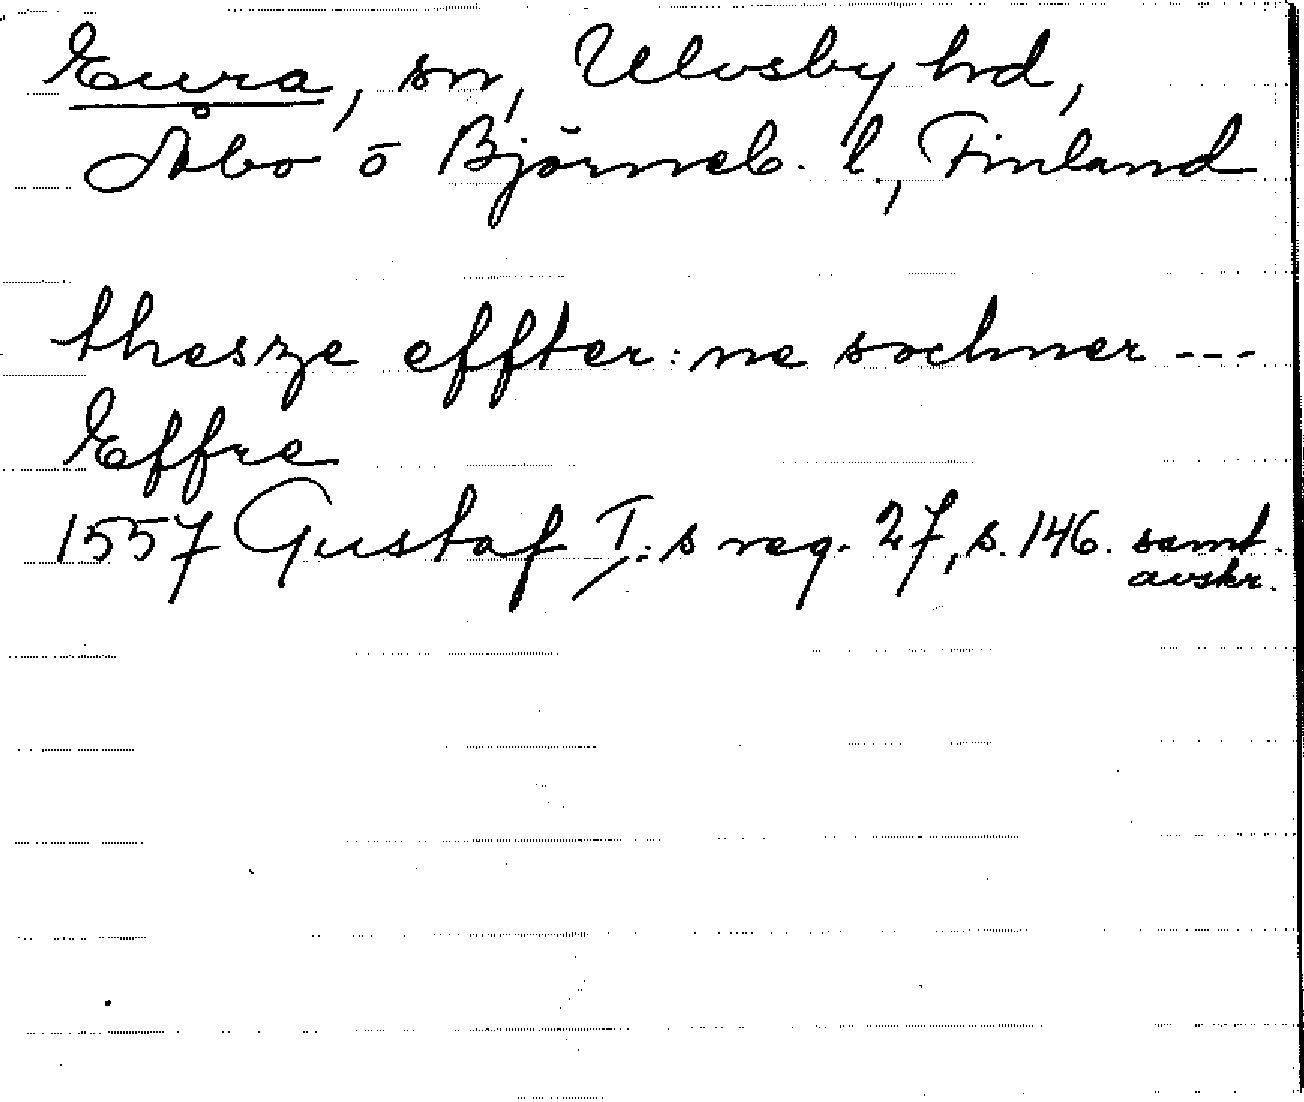 Eura, sn, Ulvsby hd,
Åbo o Björneb. l., Finland
thesze effter:ne sochner ---
Effre
1557 Gustaf I:s reg. 27, s. 146. samt.
avskr.